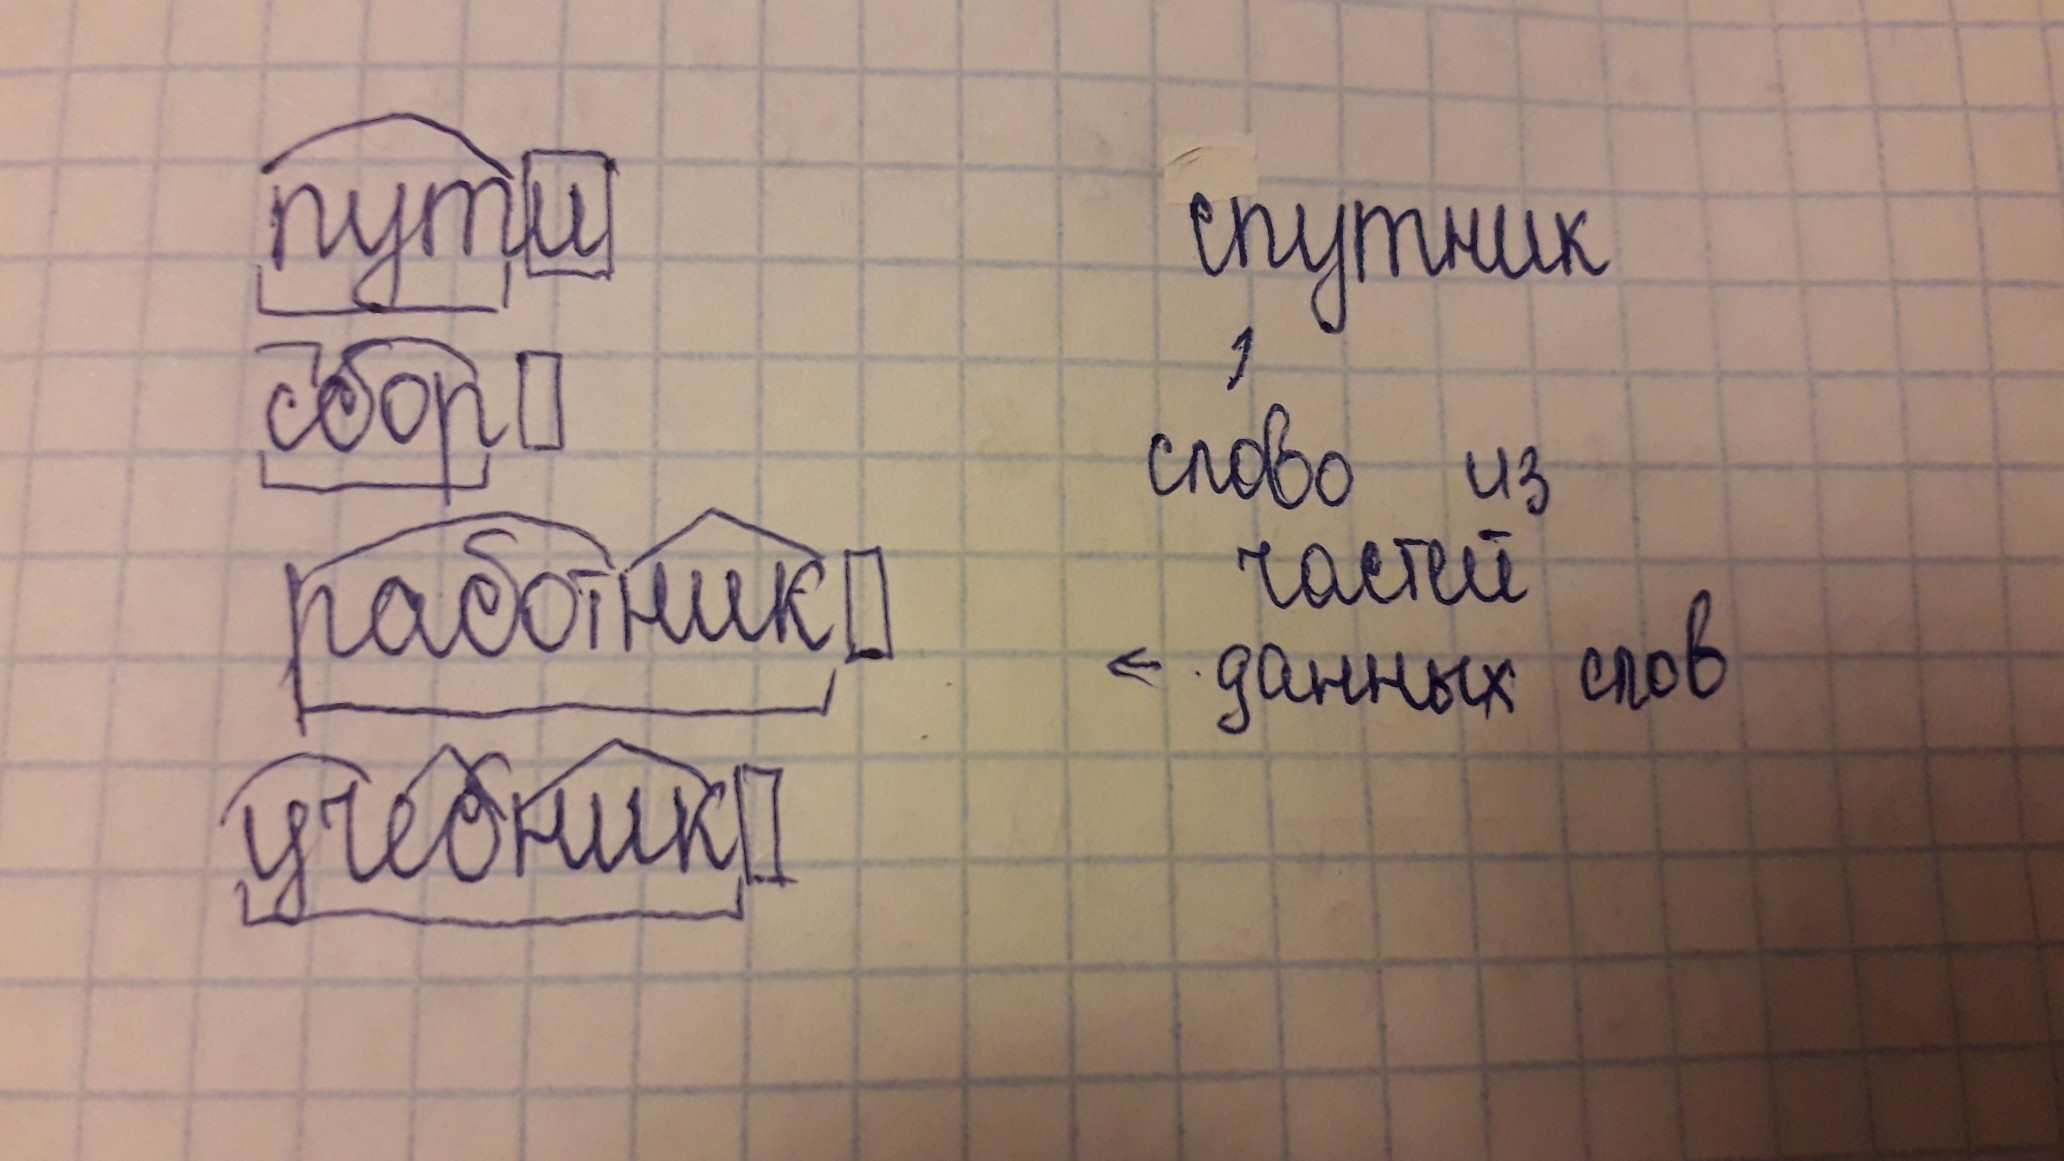 пути
сбор
работник
учебник
спутник
слово из
частей
← данных слов